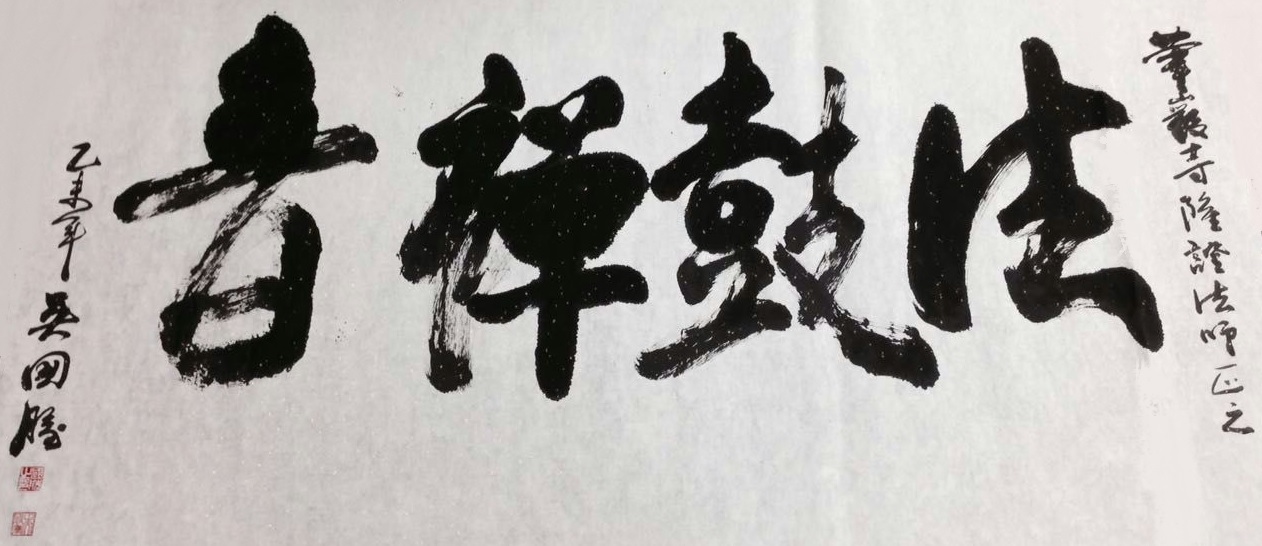 華巖寺隆證法師正之
法鼓禪音
乙未年 吳國勝